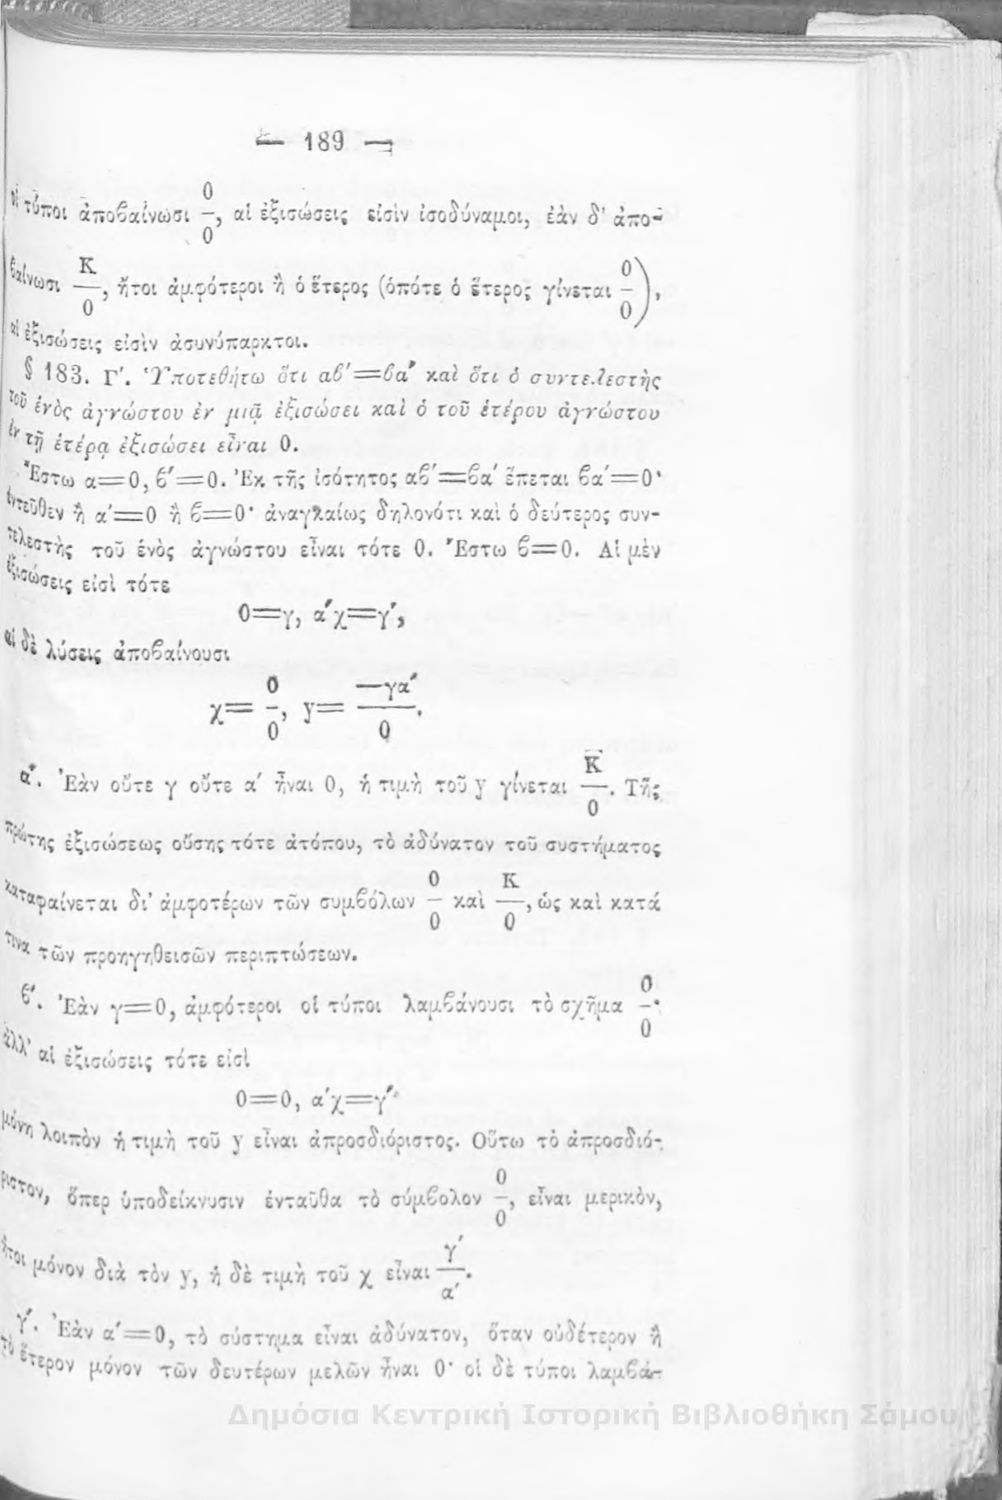 — 189 —
οἱ τύποι ἀποβαίνωσι 0/0, αἱ ἐξισώσεις εἰσὶν ἰσοδύναμοι, ἐὰν δ' ἀπο-
βαίνωσι K/0, ἤτοι ἀμφότεροι ἢ ὁ ἕτερος (ὁπότε ὁ ἕτερος γίνεται 0/0),
αἱ ἐξισώσεις εἰσὶν ἀσυνύπαρκτοι.
§ 183. Γ'. Ὑποτεθήτω ὅτι αβ'=βα' καὶ ὅτι ὁ συντελεστὴς
τοῦ ἑνὸς ἀγνώστου ἐν μιᾷ ἐξισώσει καὶ ὁ τοῦ ἑτέρου ἀγνώστου
ἐν τῇ ἑτέρᾳ ἐξισώσει εἶναι 0.
Ἔστω α=0, β'=0. Ἐκ τῆς ἰσότητος αβ'=βα' ἕπεται βα'=0·
ἐντεῦθεν ἢ α'=0 ἢ β=0· ἀναγκαίως δηλονότι καὶ ὁ δεύτερος συν-
τελεστὴς τοῦ ἑνὸς ἀγνώστου εἶναι τότε 0. Ἔστω β=0. Αἱ μὲν
ἐξισώσεις εἰσὶ τότε
0=γ, α'χ=γ',
αἱ δὲ λύσεις ἀποβαίνουσι
χ= 0/0, y= —γα'/0.
α'. Ἐὰν οὔτε γ οὔτε α' ἦναι 0, ἡ τιμὴ τοῦ y γίνεται K/0. Τῆς
πρώτης ἐξισώσεως οὔσης τότε ἀτόπου, τὸ ἀδύνατον τοῦ συστήματος
καταφαίνεται δι' ἀμφοτέρων τῶν συμβόλων 0/0 καὶ K/0, ὡς καὶ κατά
τινα τῶν προηγηθεισῶν περιπτώσεων.
β'. Ἐὰν γ=0, ἀμφότεροι οἱ τύποι λαμβάνουσι τὸ σχῆμα 0/0·
ἀλλ' αἱ ἐξισώσεις τότε εἰσὶ
0=0, α'χ=γ'·
μόνη λοιπὸν ἡ τιμὴ τοῦ y εἶναι ἀπροσδιόριστος. Οὕτω τὸ ἀπροσδιό-
ριστον, ὅπερ ὑποδείκνυσιν ἐνταῦθα τὸ σύμβολον 0/0, εἶναι μερικὸν,
ἤτοι μόνον διὰ τὸν y, ἡ δὲ τιμὴ τοῦ χ εἶναι γ'/α'.
γ'. Ἐὰν α'=0, τὸ σύστημα εἶναι ἀδύνατον, ὅταν οὐδέτερον ἢ
τὸ ἕτερον μόνον τῶν δευτέρων μελῶν ἦναι 0· οἱ δὲ τύποι λαμβά-
Δημόσια Κεντρική Ιστορική Βιβλιοθήκη Σάμου